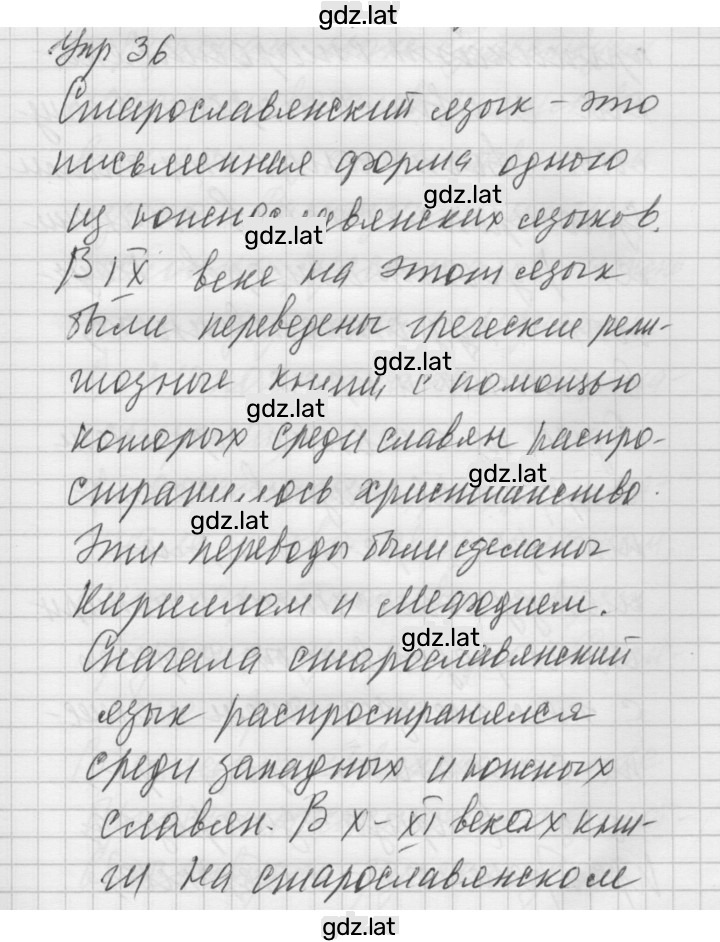 gdz.lat
Упр 36
Старославянский язык – это
письменная форма одного
gdz.lat
из южнославянских языков.
gdz.lat
В IX веке на этот язык
были переведены греческие рели-
gdz.lat
гиозные книги, с помощью
gdz.lat
которых среди славян распро-
gdz.lat
странилось христианство.
gdz.lat
Эти переводы были сделаны
Кириллом и Мефодием.
gdz.lat
Сначала старославянский
язык распространялся
среди западных и южных
славян. В X–XI веках кни-
ги на старославянском
gdz.lat